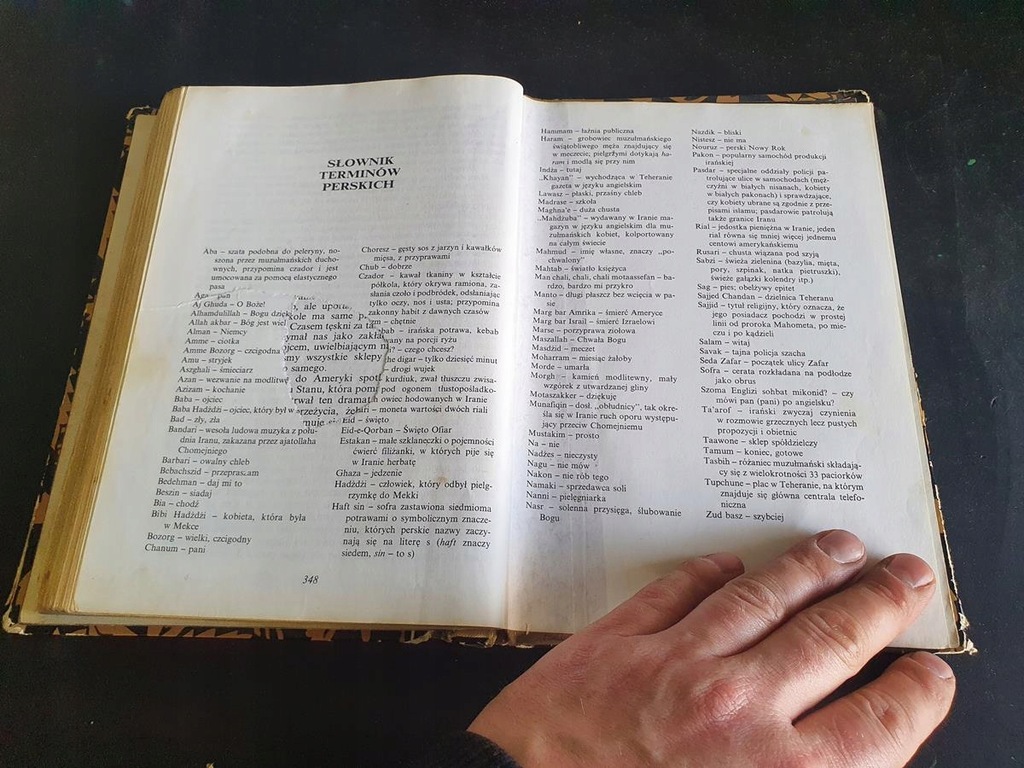 SŁOWNIK
TERMINÓW
PERSKICH
Aba – szata podobna do peleryny, no-
szona przez muzułmańskich ducho-
wnych, przypomina czador i jest
umocowana za pomocą elastycznego
pasa
Aga – pan
Aj Ghuda – O Boże!
Alhamdulillah – Bogu dzięki
Allah akbar – Bóg jest wiel
Alman – Niemcy
Amme – ciotka
Amme Bozorg – czcigodna
Amu – stryjek
Aszghali – śmieciarz
Azan – wezwanie na modlitwę
Azizam – kochanie
Baba – ojciec
Baba Hadżdżi – ojciec, który był w
Bad – zły, zła
Bandari – wesoła ludowa muzyka z połu-
dnia Iranu, zakazana przez ajatollaha
Chomejniego
Barbari – owalny chleb
Bebachszid – przepraszam
Bedehman – daj mi to
Beszin – siadaj
Bia – chodź
Bibi Hadżdżi – kobieta, która była
w Mekce
Bozorg – wielki, czcigodny
Chanum – pani
ale uporc
kole ma same p
Czasem tęskni za ta
ymał nas jako zakła
jcem, uwielbiającym n
my wszystkie sklepy
samego.
do Ameryki spot
Stanu, która pom
rwał ten dramat
rzeżycia, że
muje
Choresz – gęsty sos z jarzyn i kawałków
mięsa, z przyprawami
Chub – dobrze
Czador – kawał tkaniny w kształcie
półkola, który okrywa ramiona, za-
słania czoło i podbródek, odsłaniając
tylko oczy, nos i usta; przypomina
zakonny habit z dawnych czasów
m – chętnie
bab – irańska potrawa, kebab
wany na porcji ryżu
? – czego chcesz?
he digar – tylko dziesięć minut
drogi wujek
kurdiuk, zwał tłuszczu zwisa-
pod ogonem tłustopośladko-
owiec hodowanych w Iranie
ari – moneta wartości dwóch riali
Eid – święto
Eid-e-Qorban – Święto Ofiar
Estakan – małe szklaneczki o pojemności
ćwierć filiżanki, w których pije się
w Iranie herbatę
Ghaza – jedzenie
Hadżdżi – człowiek, który odbył pielg-
rzymkę do Mekki
Haft sin – sofra zastawiona siedmioma
potrawami o symbolicznym znacze-
niu, których perskie nazwy zaczy-
nają się na literę s (haft znaczy
siedem, sin – to s)
348
Hammam – łaźnia publiczna
Haram – grobowiec muzułmańskiego
świątobliwego męża znajdujący się
w meczecie; pielgrzymi dotykają ha-
ram i modlą się przy nim
Indża – tutaj
„Khayan” – wychodząca w Teheranie
gazeta w języku angielskim
Lawasz – płaski, przaśny chleb
Madrase – szkoła
Maghna'e – duża chusta
„Mahdżuba” – wydawany w Iranie ma-
gazyn w języku angielskim dla mu-
zułmańskich kobiet, kolportowany
na całym świecie
Mahmud – imię własne, znaczy „po-
chwalony”
Mahtab – światło księżyca
Man chali, chali, chali motaassefan – ba-
rdzo, bardzo mi przykro
Manto – długi płaszcz bez wcięcia w pa-
sie
Marg bar Amrika – śmierć Ameryce
Marg bar Israil – śmierć Izraelowi
Marse – przyprawa ziołowa
Maszallah – Chwała Bogu
Masdżid – meczet
Moharram – miesiąc żałoby
Morde – umarła
Morgh – kamień modlitewny, mały
wzgórek z utwardzanej gliny
Motaszakker – dziękuję
Munafiqin – dosł. „obłudnicy”, tak okre-
śla się w Iranie ruch oporu występu-
jący przeciw Chomejniemu
Mustakim – prosto
Na – nie
Nadżes – nieczysty
Nagu – nie mów
Nakon – nie rób tego
Namaki – sprzedawca soli
Nanni – pielęgniarka
Nasr – solenna przysięga, ślubowanie
Bogu
Nazdik – bliski
Nistesz – nie ma
Nouruz – perski Nowy Rok
Pakon – popularny samochód produkcji
irańskiej
Pasdar – specjalne oddziały policji pa-
trolujące ulice w samochodach (męż-
czyźni w białych nisanach, kobiety
w białych pakonach) i sprawdzające,
czy kobiety ubrane są zgodnie z prze-
pisami islamu; pasdarowie patrolują
także granice Iranu
Rial – jedostka pieniężna w Iranie, jeden
rial równa się mniej więcej jednemu
centowi amerykańskiemu
Rusari – chusta wiązana pod szyją
Sabzi – świeża zielenina (bazylia, mięta,
pory, szpinak, natka pietruszki),
świeże gałązki kolendry itp.)
Sag – pies; obelżywy epitet
Sajjed Chandan – dzielnica Teheranu
Sajjid – tytuł religijny, który oznacza, że
jego posiadacz pochodzi w prostej
linii od proroka Mahometa, po mie-
czu i po kądzieli
Salam – witaj
Savak – tajna policja szacha
Seda Zafar – początek ulicy Zafar
Sofra – cerata rozkładana na podłodze
jako obrus
Szoma Englizi sohbat mikonid? – czy
mówi pan (pani) po angielsku?
Ta'arof – irański zwyczaj czynienia
w rozmowie grzecznych lecz pustych
propozycji i obietnic
Taawone – sklep spółdzielczy
Tamum – koniec, gotowe
Tasbih – różaniec muzułmański składają-
cy się z wielokrotności 33 paciorków
Tupchune – plac w Teheranie, na którym
znajduje się główna centrala telefo-
niczna
Zud basz – szybciej